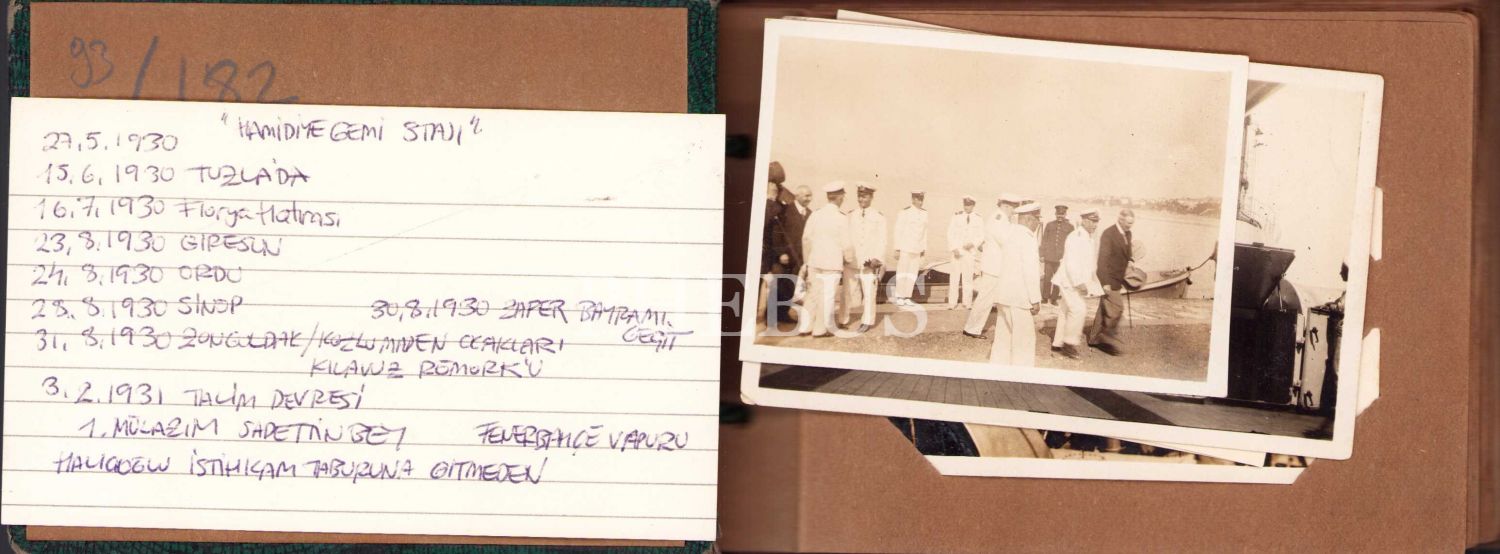 93/182
27.5.1930 "HAMİDİYE GEMİ STAJI"
15.6.1930 TUZLA'DA
16.7.1930 Florya Hatırası
23.8.1930 GİRESUN
24.8.1930 ORDU
28.8.1930 SİNOP 30.8.1930 ZAFER BAYRAMI.
GEÇİT
31.8.1930 ZONGULDAK/KOZLU MADEN OCAKLARI
KILAVUZ RÖMORK'Ü
3.2.1931 TALİM DEVRESİ
1. MÜLAZIM SADETTİN BEY FENERBAHÇE VAPURU
HALICIOĞLU İSTİHKAM TABURUNA GİTMEDEN
PHEBUS